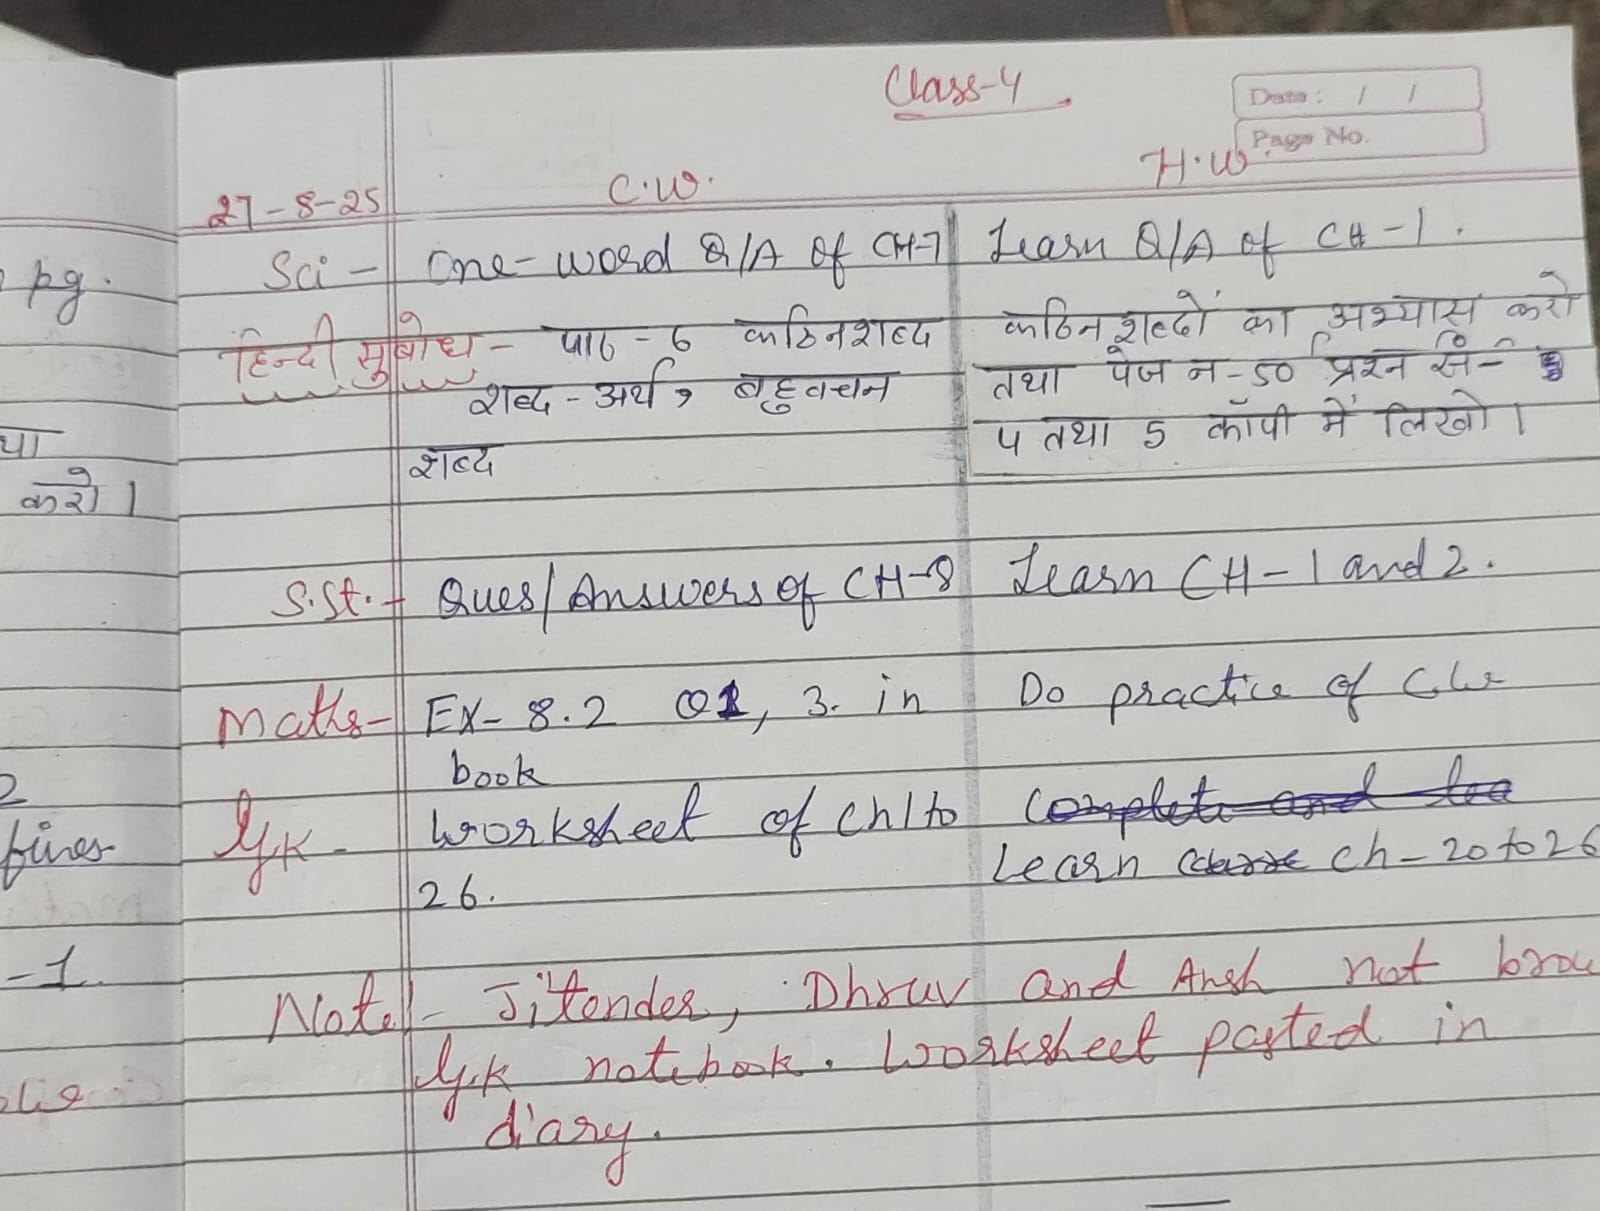 Class-4
Date: / /
Page No.
27-8-25 C.W. H.W.
Sci - One-word Q/A of CH-7 Learn Q/A of CH-1.
हिन्दी सुबोध - पाठ-6 कठिन शब्द कठिन शब्दों का अभ्यास करो
शब्द-अर्थ, बहुवचन तथा पेज न-50 प्रश्न सं-
शब्द 4 तथा 5 कॉपी में लिखो।
S.St. - Ques/Answers of CH-8 Learn CH-1 and 2.
Maths- EX-8.2 Q1, 3. in Do practice of C.W
book
G.K - Worksheet of Ch 1 to Complete and
26. Learn Ch-20 to 26
Note - Jitender, Dhruv and Ansh not brou
G.K notebook. Worksheet pasted in
diary.
pg.
या
करो।
2
fines
-1.